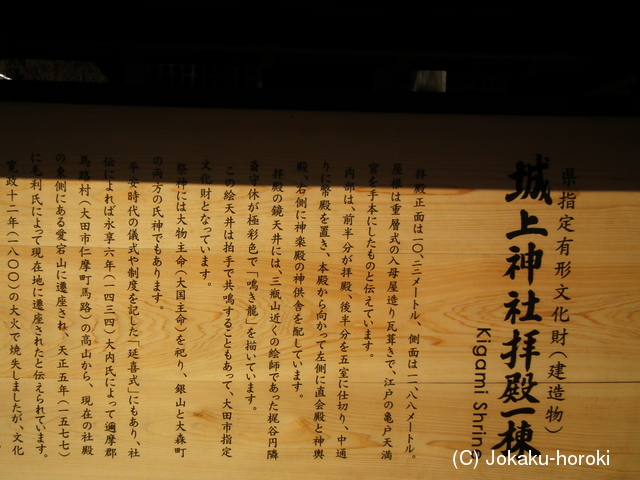 県指定有形文化財(建造物)
城上神社拝殿一棟
Kigami Shrine
拝殿正面は一〇、二二メートル、側面は一二、八八メートル。
屋根は重層式の入母屋造り瓦葺きで、江戸の亀戸天満
宮を手本にしたものと伝えています。
内部は、前半分が拝殿、後半分を五室に仕切り、中通
りに幣殿を置き、本殿から向かって左側に直会殿と神輿
殿、右側に神楽殿の神供舎を配しています。
拝殿の鏡天井には、三瓶山近くの絵師であった梶谷円隣
斎守休が極彩色で「鳴き龍」を描いています。
この絵天井は拍手で共鳴することもあって、大田市指定
文化財となっています。
祭神には大物主命(大国主命)を祀り、銀山と大森町
の両方の氏神でもあります。
平安時代の儀式や制度を記した「延喜式」にもあり、社
伝によれば永享六年(一四三四)大内氏によって邇摩郡
馬路村(大田市仁摩町馬路)の高山から、現在の社殿
の東側にある愛宕山に遷座され、天正五年(一五七七)
に毛利氏によって現在地に遷座されたと伝えられています。
寛政十二年(一八〇〇)の大火で焼失しましたが、文化
(C) Jokaku-horoki